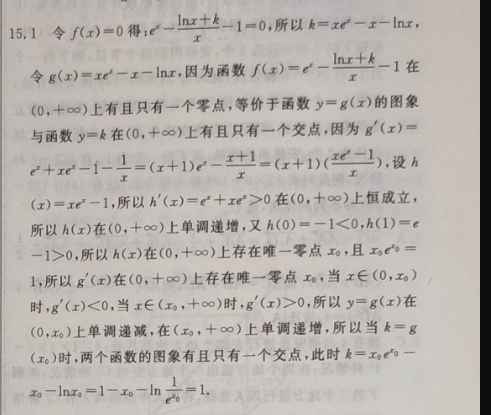 15.1 令 f(x)=0 得,eˣ-(lnx+k)/x-1=0,所以 k=xeˣ-x-lnx,
令 g(x)=xeˣ-x-lnx,因为函数 f(x)=eˣ-(lnx+k)/x-1 在
(0,+∞)上有且只有一个零点,等价于函数 y=g(x)的图象
与函数 y=k 在(0,+∞)上有且只有一个交点,因为 g′(x)=
eˣ+xeˣ-1-1/x=(x+1)eˣ-(x+1)/x=(x+1)((xeˣ-1)/x),设 h
(x)=xeˣ-1,所以 h′(x)=eˣ+xeˣ>0 在(0,+∞)上恒成立,
所以 h(x)在(0,+∞)上单调递增,又 h(0)=-1<0,h(1)=e
-1>0,所以 h(x)在(0,+∞)上存在唯一零点 x₀,且 x₀e^{x₀}=
1,所以 g′(x)在(0,+∞)上存在唯一零点 x₀,当 x∈(0,x₀)
时,g′(x)<0,当 x∈(x₀,+∞)时,g′(x)>0,所以 y=g(x)在
(0,x₀)上单调递减,在(x₀,+∞)上单调递增,所以当 k=g
(x₀)时,两个函数的图象有且只有一个交点,此时 k=x₀e^{x₀}-
x₀-lnx₀=1-x₀-ln(1/e^{x₀})=1.